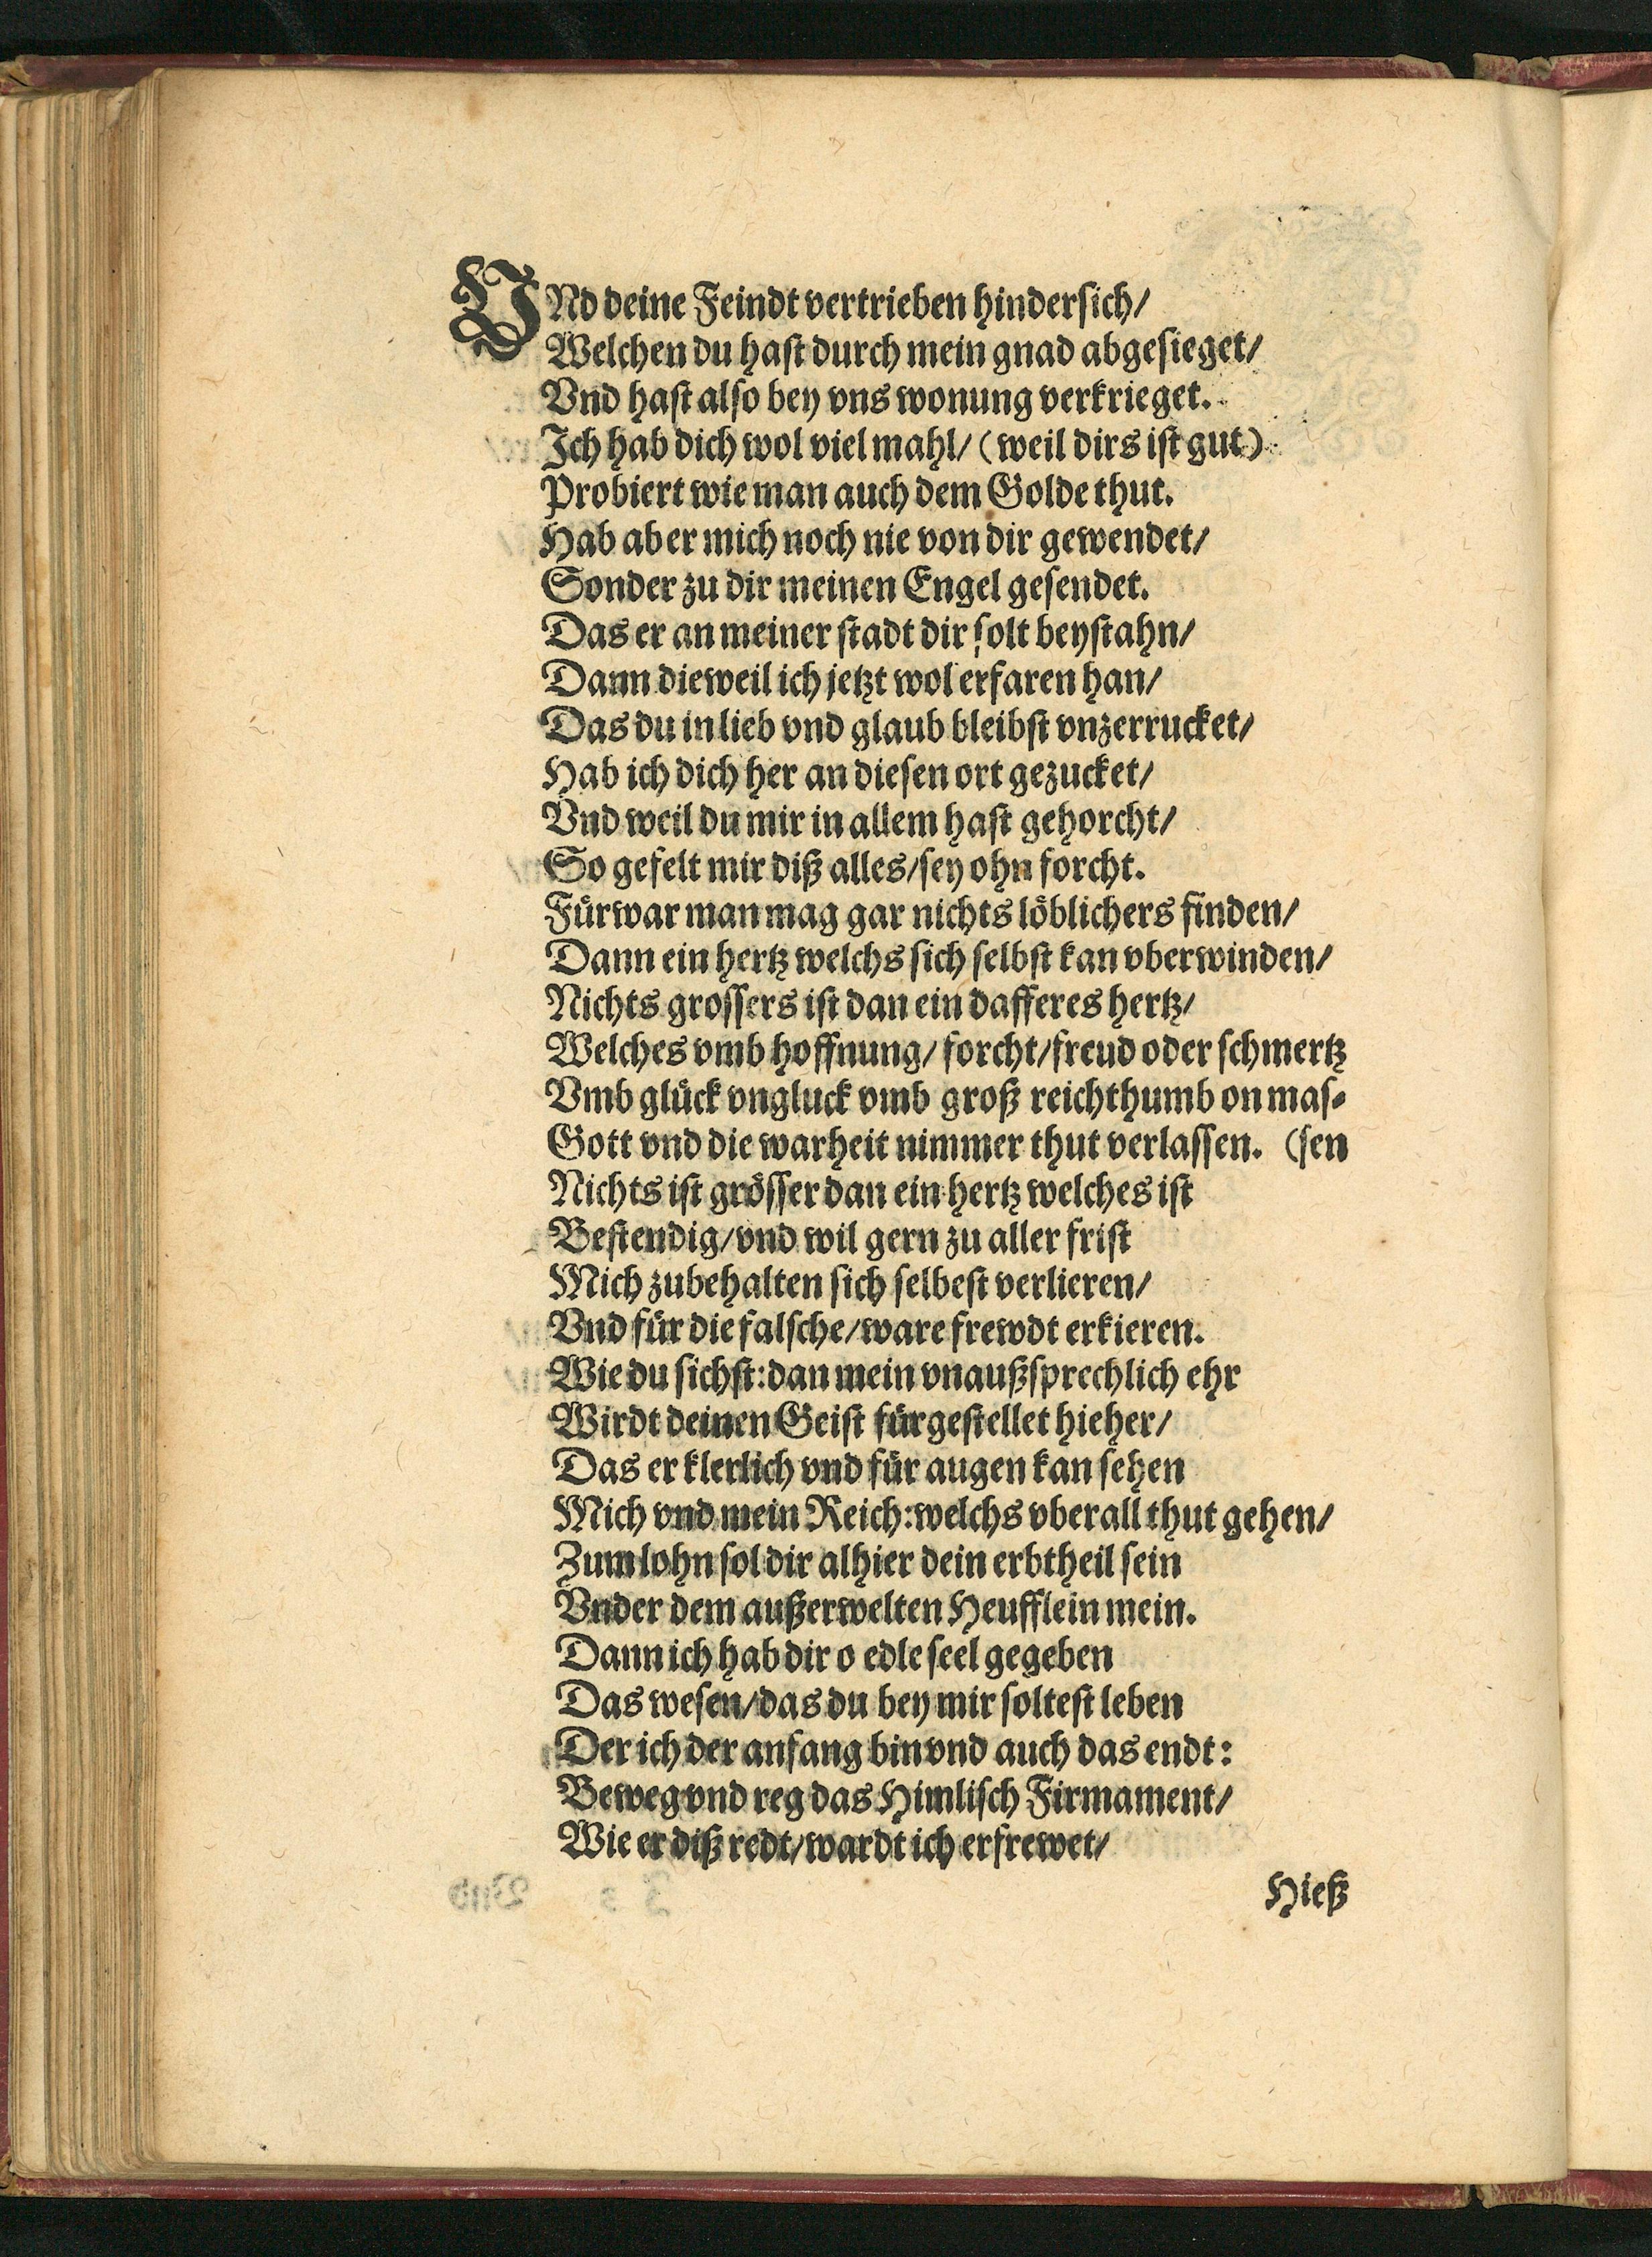 VNd deine Feindt vertrieben hindersich/
Welchen du hast durch mein gnad abgesieget/
Vnd hast also bey vns wonung verkrieget.
Ich hab dich wol viel mahl/ (weil dirs ist gut)
Probiert wie man auch dem Golde thut.
Hab aber mich noch nie von dir gewendet/
Sonder zu dir meinen Engel gesendet.
Das er an meiner stadt dir solt beystahn/
Dann dieweil ich jetzt wol erfaren han/
Das du in lieb vnd glaub bleibst vnzerrucket/
Hab ich dich her an diesen ort gezucket/
Vnd weil du mir in allem hast gehorcht/
So gefelt mir diß alles/sey ohn forcht.
Fürwar man mag gar nichts löblichers finden/
Dann ein hertz welchs sich selbst kan vberwinden/
Nichts grossers ist dan ein dafferes hertz/
Welches vmb hoffnung/ forcht/freud oder schmertz
Vmb glück vngluck vmb groß reichthumb on mas-
Gott vnd die warheit nimmer thut verlassen. (sen
Nichts ist grösser dan ein hertz welches ist
Bestendig/vnd wil gern zu aller frist
Mich zubehalten sich selbest verlieren/
Vnd für die falsche/ware frewdt erkieren.
Wie du sichst:dan mein vnaußsprechlich ehr
Wirdt deinen Geist fürgestellet hieher/
Das er klerlich vnd für augen kan sehen
Mich vnd mein Reich:welchs vberall thut gehen/
Zum lohn sol dir alhier dein erbtheil sein
Vnder dem außerwelten Heufflein mein.
Dann ich hab dir o edle seel gegeben
Das wesen/das du bey mir soltest leben
Der ich der anfang bin vnd auch das endt:
Beweg vnd reg das Himlisch Firmament/
Wie er diß redt/wardt ich erfrewet/
Hieß